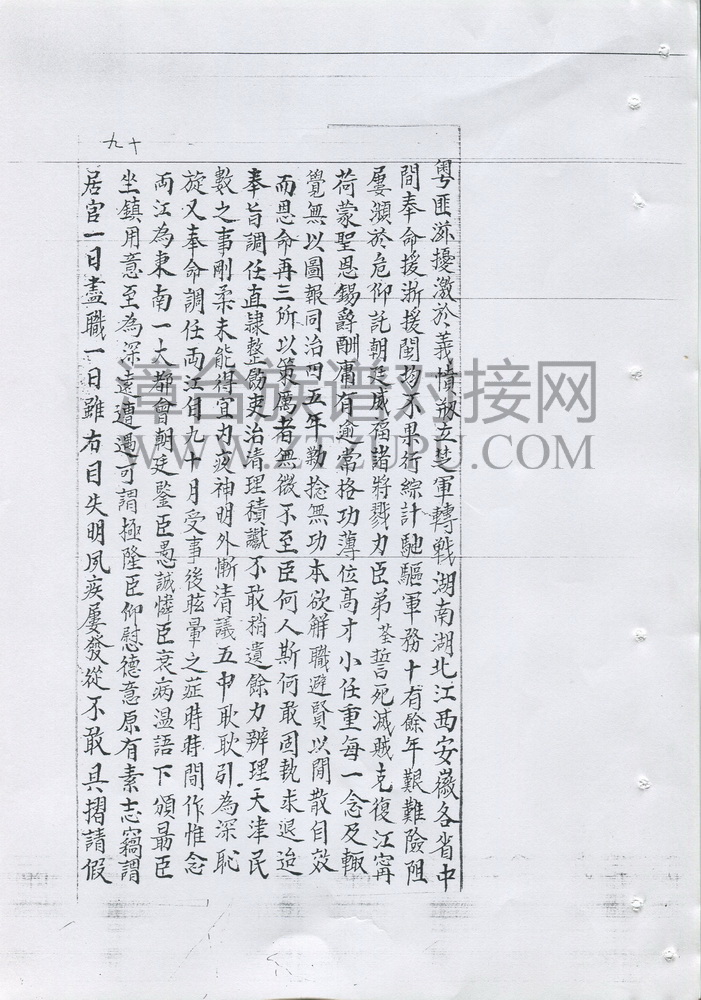 九十
粵匪滋擾激於義憤剏立楚軍轉戰湖南湖北江西安徽各省中
間奉命援浙援閩均不果行綜計馳驅軍務十有餘年艱難險阻
屢瀕於危仰託朝廷威福諸將戮力臣弟荃誓死滅賊克復江甯
荷蒙聖恩錫爵酬庸有逾常格功薄位高才小任重每一念及輙
覺無以圖報同治四五年勦捻無功本欲觧職避賢以閒散自效
而恩命再三所以策厲者無微不至臣何人斯何敢固執求退迨
奉旨調任直隸整勵吏治清理積讞不敢稍遺餘力辦理天津民
教之事剛柔未能得宜內疚神明外慚清議五中耿耿引為深恥
旋又奉命調任両江自九十月受事後眩暈之症時時間作惟念
両江為東南一大都會朝廷鑒臣愚誠憐臣衰病温語下頒最臣
坐鎮用意至為深遠遭遇可謂極隆臣仰慰德意原有素志竊謂
居官一日盡職一日雖右目失明夙疾屢發從不敢具摺請假
漳台族谱对接网
WWW.ZTZUPU.COM